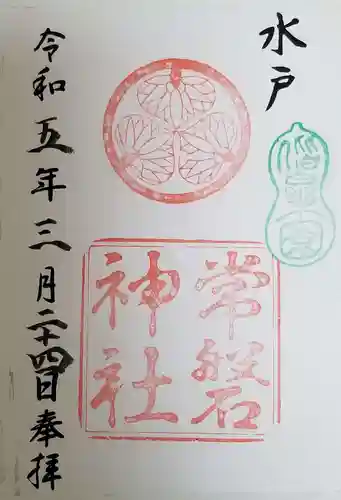 水戸
常磐
神社
令和五年三月二十四日奉拝